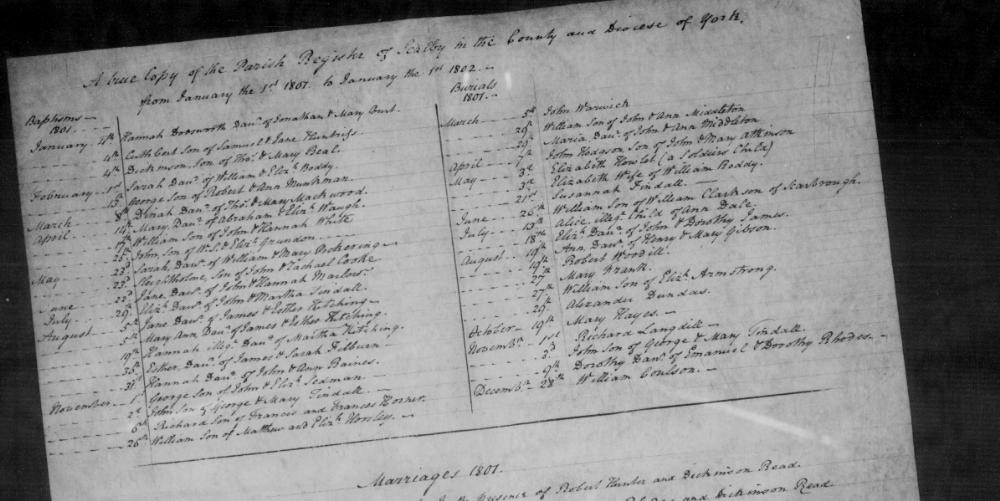 A true Copy of the Parish Register of Scalby in the County and Diocese of York,
from January the 1st 1801. to January the 1st 1802.
Baptisms
1801.
January 4th Hannah Daur. of Jonathan & Mary
4th Cuthbert Son of Samuel & Jane Hendriss
4th Dickinson Son of Thos. & Mary Beal.
February 1st Sarah Daur. of William & Elizh. Boddy.
15th George Son of Robert & Ann Munkman.
March 8th Dinah Daur. of Thos. & Mary Mackwood.
April 14th Mary Daur. of Abraham & Elizh. Waugh.
William Son of John & Hannah White
25th John Son of Wm. & Elizh. Grundon.
May 23d Sarah Daur. of William & Mary Pickering
23d Fleighholme, Son of John & Rachael Cooke
22d Jane Daur. of John & Hannah Marlow.
June 29th Elizh. Daur. of John & Martha Tindall.
July 5th Jane Daur. of James & Esther Hitching
August 5th Mary Ann Daur. of James & Esther Hitching.
19th Hannah illegt. Daur. of Martha Hitching.
30th Esther Daur. of James & Sarah Filburn.
31st Hannah Daur. of John & Ann Baines.
November 1st George Son of John & Elizh. Seaman.
2d John Son of George & Mary Tindall
6th Richard Son of Francis and Frances Horner.
26th William Son of Matthew and Elizh. Horsley.
Burials
1801.
March 5th John Warwick
29th William Son of John & Ann Middleton
29th Maria Daur. of John & Ann Middleton
April 7th John Hodgson Son of John & Mary Atkinson
May 3d Elizabeth Howlet (a Soldiers Child)
3d Elizabeth Wife of William Boddy.
21st Susannah Tindall.
June 26th William Son of William Clarkson of Scarbrough.
July 13th Alice illegt. Child of Ann Dale.
18th Elizh. Daur. of John & Dorothy James.
August 19th Ann Daur. of Henry & Mary Gibson.
19th Robert Wordill.
27 Mary Frank.
27th William Son of Elizh. Armstrong.
29th Alexander Dundas.
October 19th Mary Hayes.
Novembr. 1st Richard Langdill
3d John Son of George & Mary Tindall.
9th Dorothy Daur. of Emanuel & Dorothy Rhodes.
Decembr. 28th William Coulson.
Marriages 1801.
Presence of Robert Hunter and Dickinson Read.
and Dickinson Read